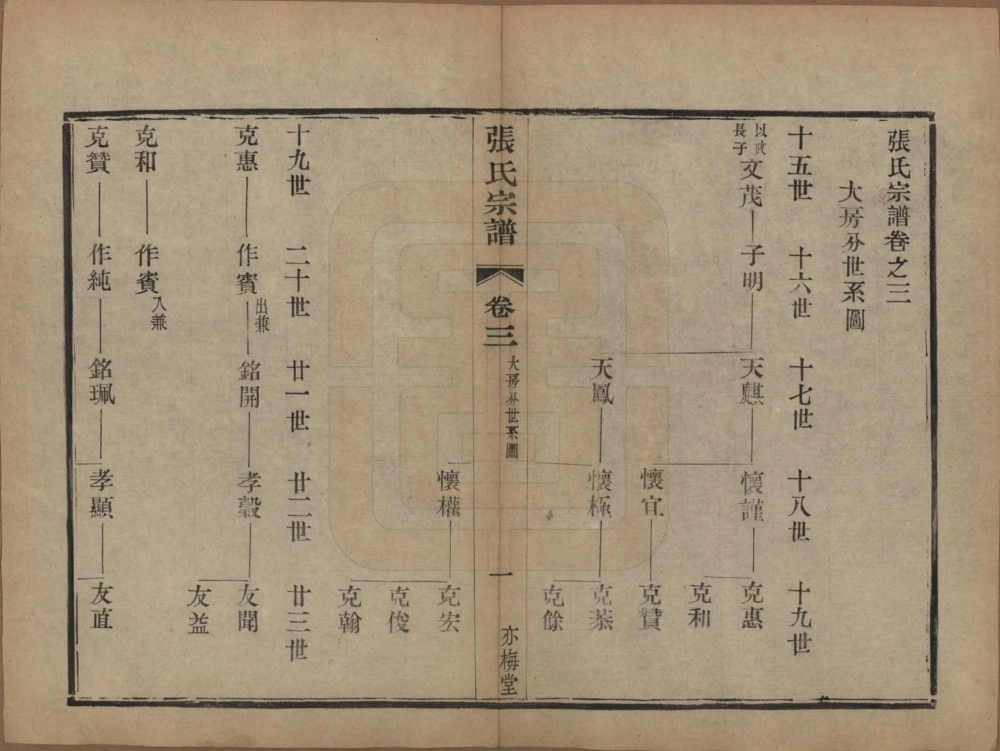 張氏宗譜卷之三
大房分世系圖
十五世 十六世 十七世 十八世 十九世
以政長子 文茂 子明 天麒 懷謹 克惠
克和
懷宜 克贊
天鳳 懷極 克恭
克餘
張氏宗譜 卷三 大房分世系圖 一 亦梅堂
懷權 克宏
克俊
克翰
十九世 二十世 廿一世 廿二世 廿三世
克惠 作賓 出兼 銘開 孝穀 友聞
友益
克和 作賓 入兼
克贊 作純 銘珮 孝顯 友直